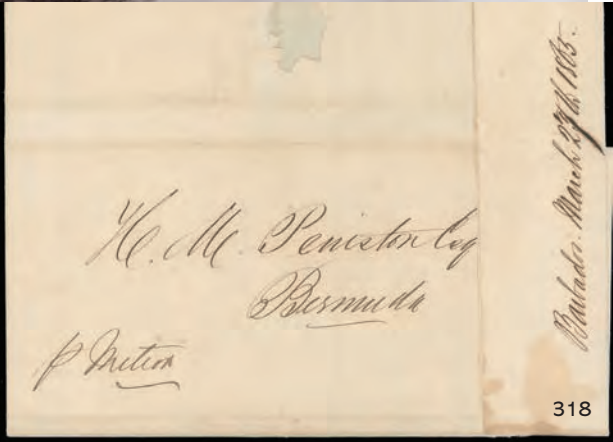 H. M. Peniston Esq
Bermuda
p Meteor
Barbados March 27th 1865.
318